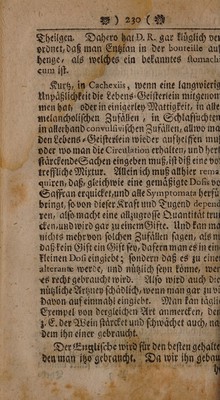 230
Theilgen. Dahero hat D. R. gar klüglich ver
ordnet, daß man Entzian in der bouteille auf
henge, als welches ein bekanntes stomachi
cum ist.
Kurtz, in Cachexiis, wenn eine langwierig
Unpäßlichkeit die Lebens-Geisterlein mitgenom
men hat, oder in einigerley Mattigkeit, in alle
melancholischen Zufällen, in Schlafsuchten
in allerhand convulsivischen Zufällen, allwo ma
den Lebens-Geisterlein wieder aufhelffen muß
oder wo man die Circulation erhalten, und herß
stärckende Sachen eingeben muß, ist diß eine vor
treffliche Mixtur. Allein ich muß allhier rema
quiren, daß, gleichwie eine gemäßigte Dosis vo
Saffran erquicket, und alle Symptomata herfü
bringt, so von dieser Kraft und Tugend depend
ren, also macht eine allzugrosse Quantität trun
cken, und wird gar zu einem Gifte. Und kan ma
nichts mehr von solchen Zufällen sagen, als
daß kein Gift ein Gift sey, dafern man es in ein
kleinen Dosi eingiebt; sondern daß es zu eine
alterante werde, und nützlich seyn könne, wen
es recht gebraucht wird. Also wird auch die
nützliche Artzney schädlich, wenn man gar zu v
davon auf einmahl eingiebt. Man kan täglich
Exempel von dergleichen Art anmercken, den
z. E. der Wein stärcket und schwächet auch, nach
dem ihn einer gebraucht.
Der Englische wird für den besten gehalte
den man itzo gebraucht. Da wir ihn gebau